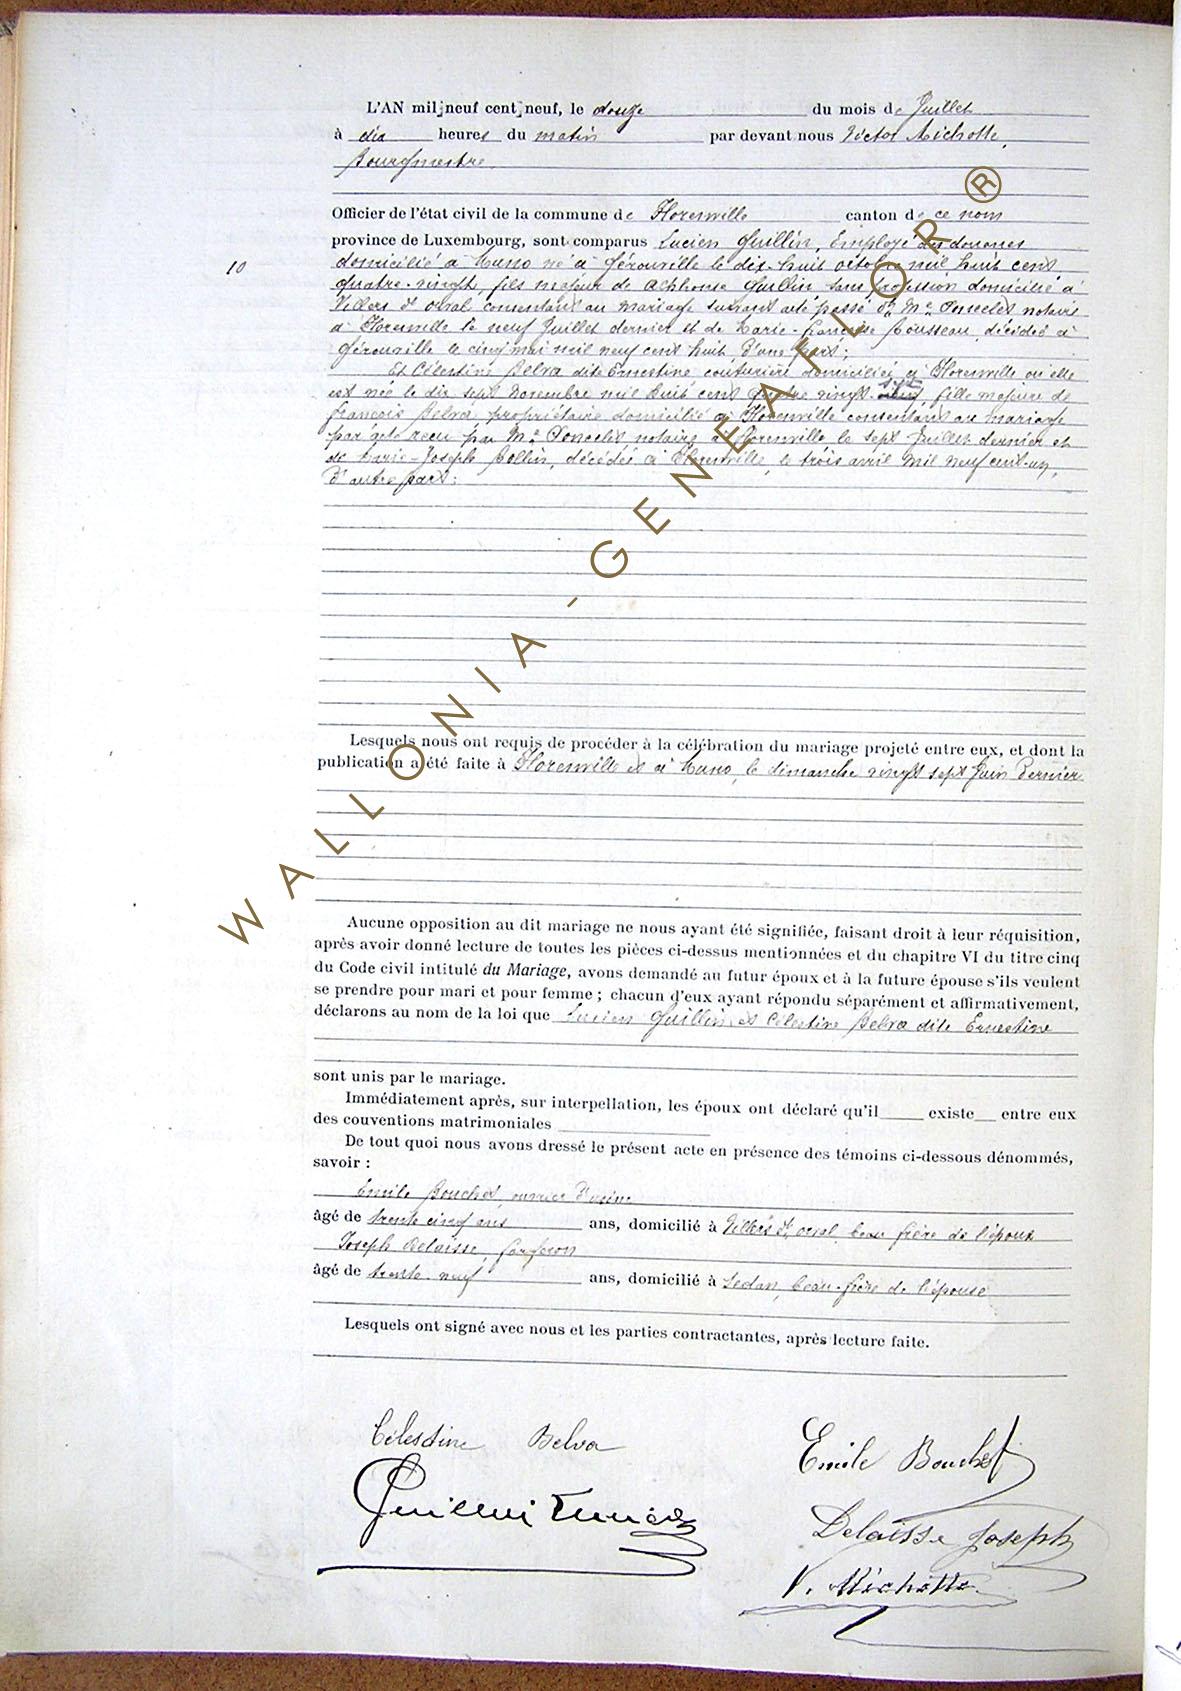 L'AN mil neuf cent neuf, le douze du mois de Juillet
à dix heures du matin par devant nous Victor Michotte,
Bourgmestre
Officier de l'état civil de la commune de Florenville canton de ce nom
province de Luxembourg, sont comparus Lucien Guillin, Employé des douanes
10
domicilié à Muno né à Gérouville le dix-huit octobre mil huit cent
quatre-vingt, fils majeur de Alphonse Guillin sans profession domicilié à
Villers dt orval consentant au mariage suivant acte passé dt Me Poncelet notaire
à Florenville le neuf Juillet dernier et de Marie-Françoise Rousseau, décédée à
Gérouville le cinq mai mil neuf cent huit d'une part;
Et Célestine Belva dite Ernestine couturière domiciliée à Florenville où elle
est née le dix sept Novembre mil huit cent quatre vingt sept, fille majeure de
François Belva, propriétaire domicilié à Florenville consentant au mariage
par acte reçu par Me Poncelet notaire à Florenville, le sept Juillet dernier et
de Marie-Joseph Collin, décédée à Florenville, le trois avril mil neuf cent-un,
d'autre part:
Lesquels nous ont requis de procéder à la célébration du mariage projeté entre eux, et dont la
publication a été faite à Florenville et à Muno, le dimanche vingt sept Juin Dernier
Aucune opposition au dit mariage ne nous ayant été signifiée, faisant droit à leur réquisition,
après avoir donné lecture de toutes les pièces ci-dessus mentionnées et du chapitre VI du titre cinq
du Code civil intitulé du Mariage, avons demandé au futur époux et à la future épouse s'ils veulent
se prendre pour mari et pour femme ; chacun d'eux ayant répondu séparément et affirmativement,
déclarons au nom de la loi que Lucien Guillin et Célestine Belva dite Ernestine
sont unis par le mariage.
Immédiatement après, sur interpellation, les époux ont déclaré qu'il existe entre eux
des couventions matrimoniales
De tout quoi nous avons dressé le présent acte en présence des témoins ci-dessous dénommés,
savoir :
Emile Bouchet, ouvrier d'usine
âgé de trente cinq ans ans, domicilié à Villers dt orval beau frère de l'époux
Joseph Delaisse, forgeron
âgé de trente-neuf ans, domicilié à Sedan, beau-frère de l'épouse
Lesquels ont signé avec nous et les parties contractantes, après lecture faite.
Célestine Belva
Emile Bouchet
Guillin Lucien
Delaisse Joseph
V. Michotte
WALLONIA-GENEAFLOR R ®